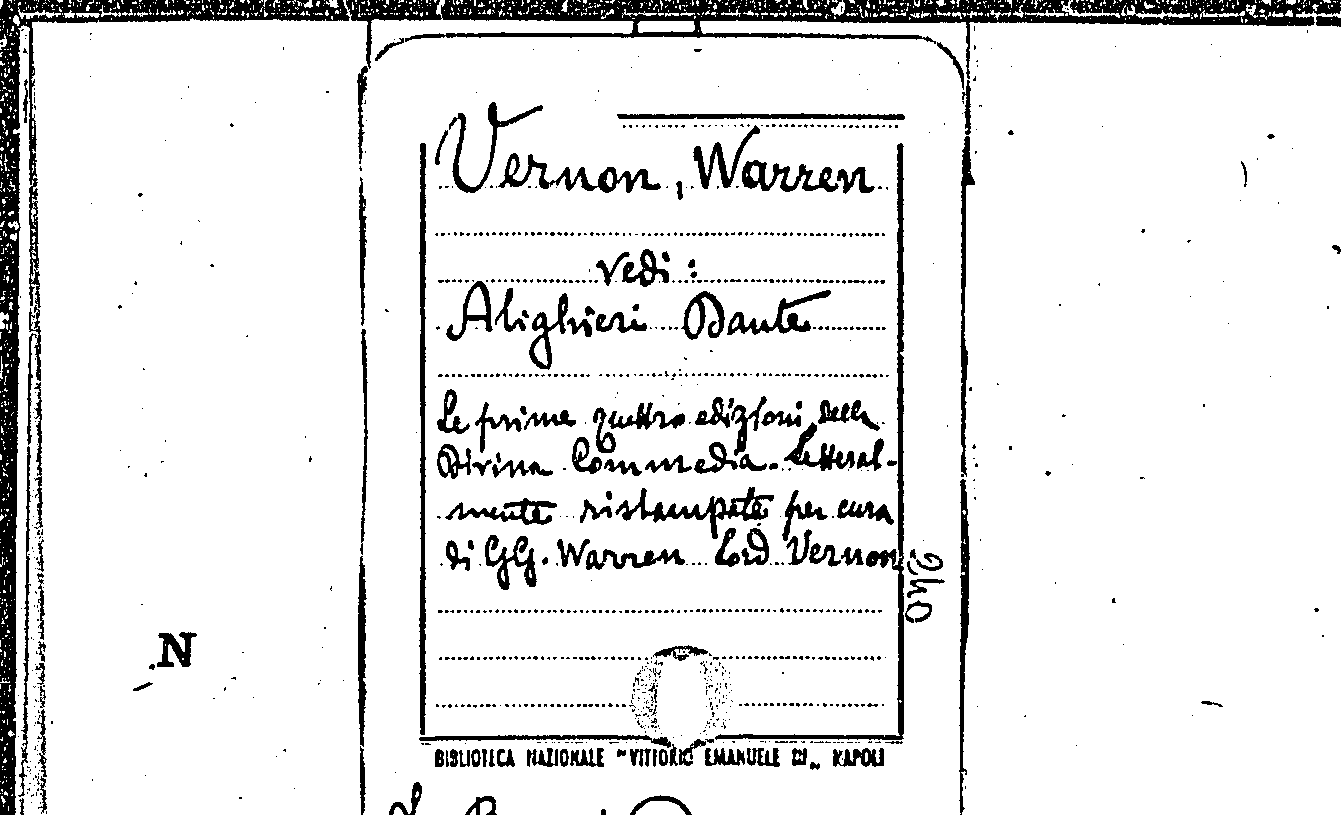 Vernon, Warren
vedi:
Alighieri Dante
Le prime quattro edizioni della
Divina Commedia. Letteral-
mente ristampate per cura
di GG. Warren Lord Vernon
240
N
BIBLIOTECA NAZIONALE "VITTORIO EMANUELE III„ NAPOLI